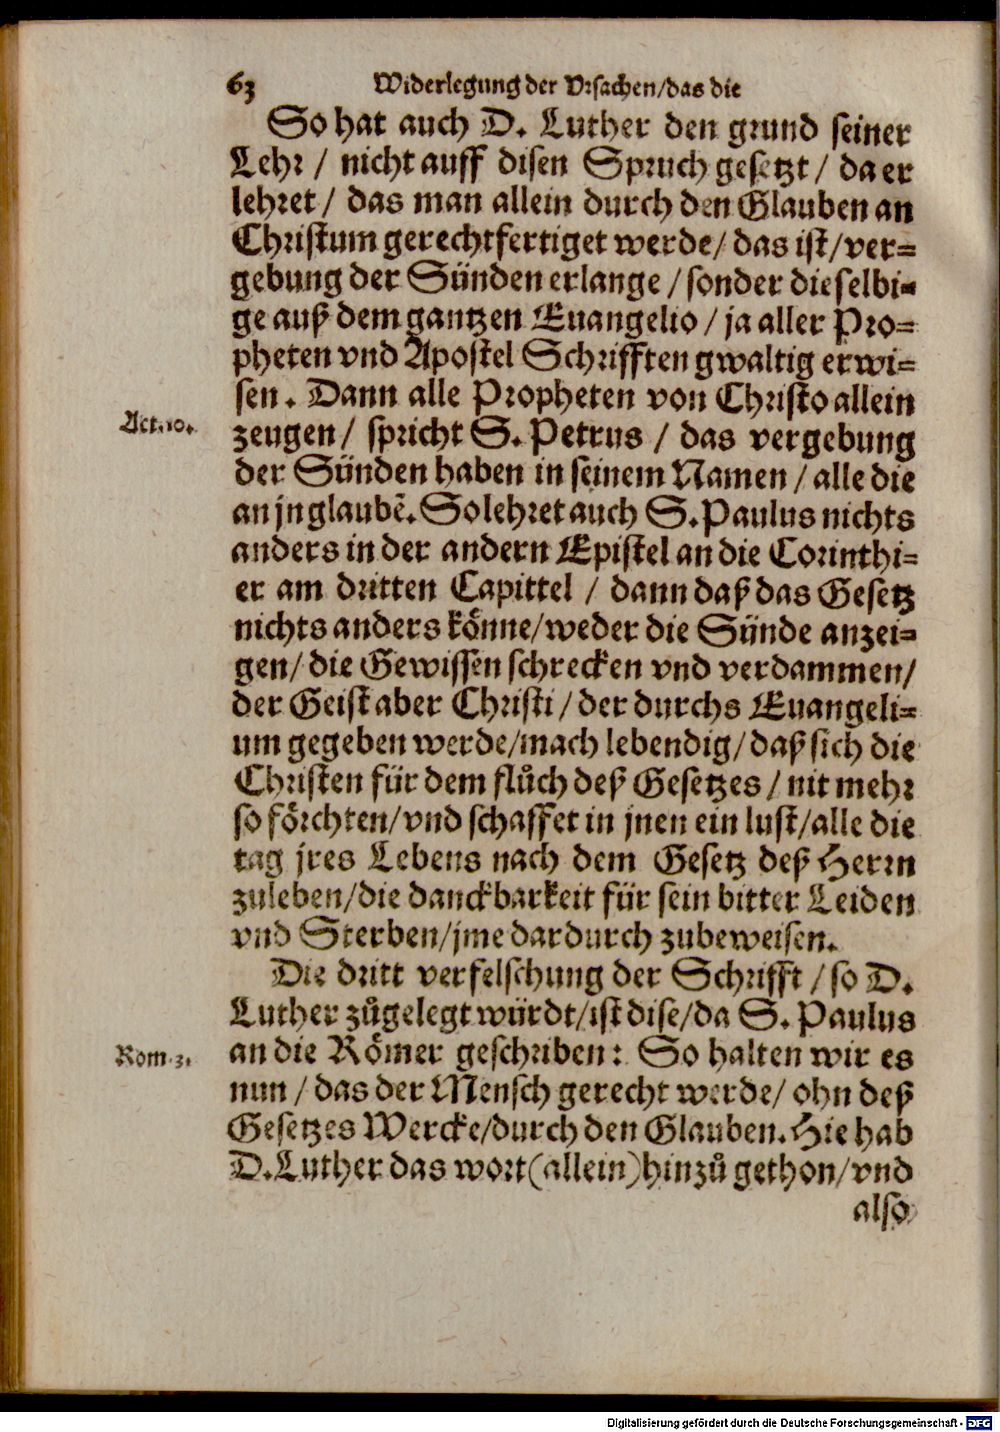 63 Widerlegung der Vrsachen/das die
So hat auch D. Luther den grund seiner
Lehr / nicht auff disen Spruch gesetzt / da er
lehret / das man allein durch den Glauben an
Christum gerechtfertiget werde/ das ist/ver-
gebung der Sünden erlange / sonder dieselbi-
ge auß dem gantzen Euangelio / ja aller Pro-
pheten vnd Apostel Schrifften gwaltig erwi-
sen. Dann alle Propheten von Christo allein
Act.10.
zeugen/ spricht S. Petrus / das vergebung
der Sünden haben in seinem Namen / alle die
an jn glaubẽ. So lehret auch S. Paulus nichts
anders in der andern Epistel an die Corinthi-
er am dritten Capittel / dann daß das Gesetz
nichts anders könne/weder die Sünde anzei-
gen/ die Gewissen schrecken vnd verdammen/
der Geist aber Christi / der durchs Euangeli-
um gegeben werde/mach lebendig/daß sich die
Christen für dem flůch deß Gesetzes / nit mehr
so förchten/vnd schaffet in jnen ein lust/alle die
tag jres Lebens nach dem Gesetz deß Herrn
zuleben/die danckbarkeit für sein bitter Leiden
vnd Sterben/jme dardurch zubeweisen.
Die dritt verfelschung der Schrifft / so D.
Luther zůgelegt würdt/ist dise/da S. Paulus
Rom.3.
an die Römer geschriben: So halten wir es
nun / das der Mensch gerecht werde/ ohn deß
Gesetzes Wercke/durch den Glauben. Hie hab
D. Luther das wort(allein)hinzů gethon/vnd
also
Digitalisierung gefördert durch die Deutsche Forschungsgemeinschaft - DFG